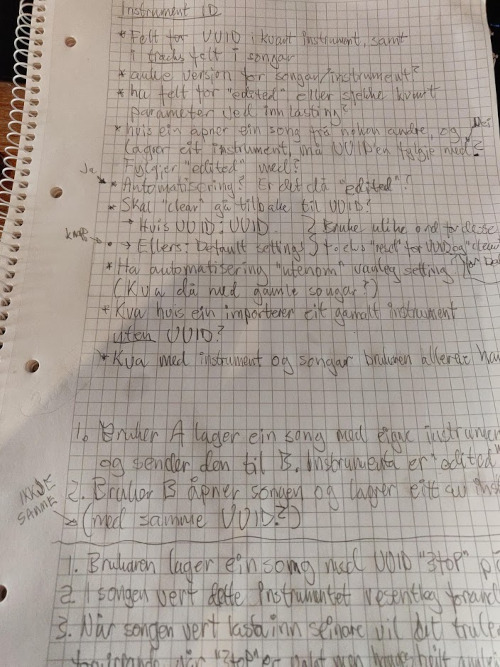 Instrument ID
* Felt for UUID i kvart instrument, samt
i tracks felt i songar
* auke version for songar/instrument?
* ha felt for "edited" eller sjekke kvart
parameter ved innlasting?
* huis ein åpner ein song frå nokon andre, og
lagrer eit instrument, må UUID'en fylgje med?
Fylgjer "edited" med?
Ja
* Automatisering? Er det då "edited"?
* Skal "clear" gå tilbake til UUID?
→ Huis UUID: UUID. } Bruke ulike ord for desse
knapp
→ Ellers: Default settings } t.d. "reset" for UUID og "clear"
for
* Ha automatisering "utenom" vanleg setting
(Kva då med gamle songar?)
* Kva huis ein importerer eit gamalt instrument
uten UUID?
* Kva med instrument og songar brukaren allereie har
1. Bruker A lager ein song med eigne instrumen
og sender den til B. Instrumenta er "edited"
2. Bruker B åpner songen og lagrer eitt av inst
IKKJE
SAMME
→ (med samme UUID?)
1. Brukaren lager ein song med UUID "3top"
2. I songen vert dette instrumentet vesentleg forand
3. Når songen vert lasta inn seinare vil det